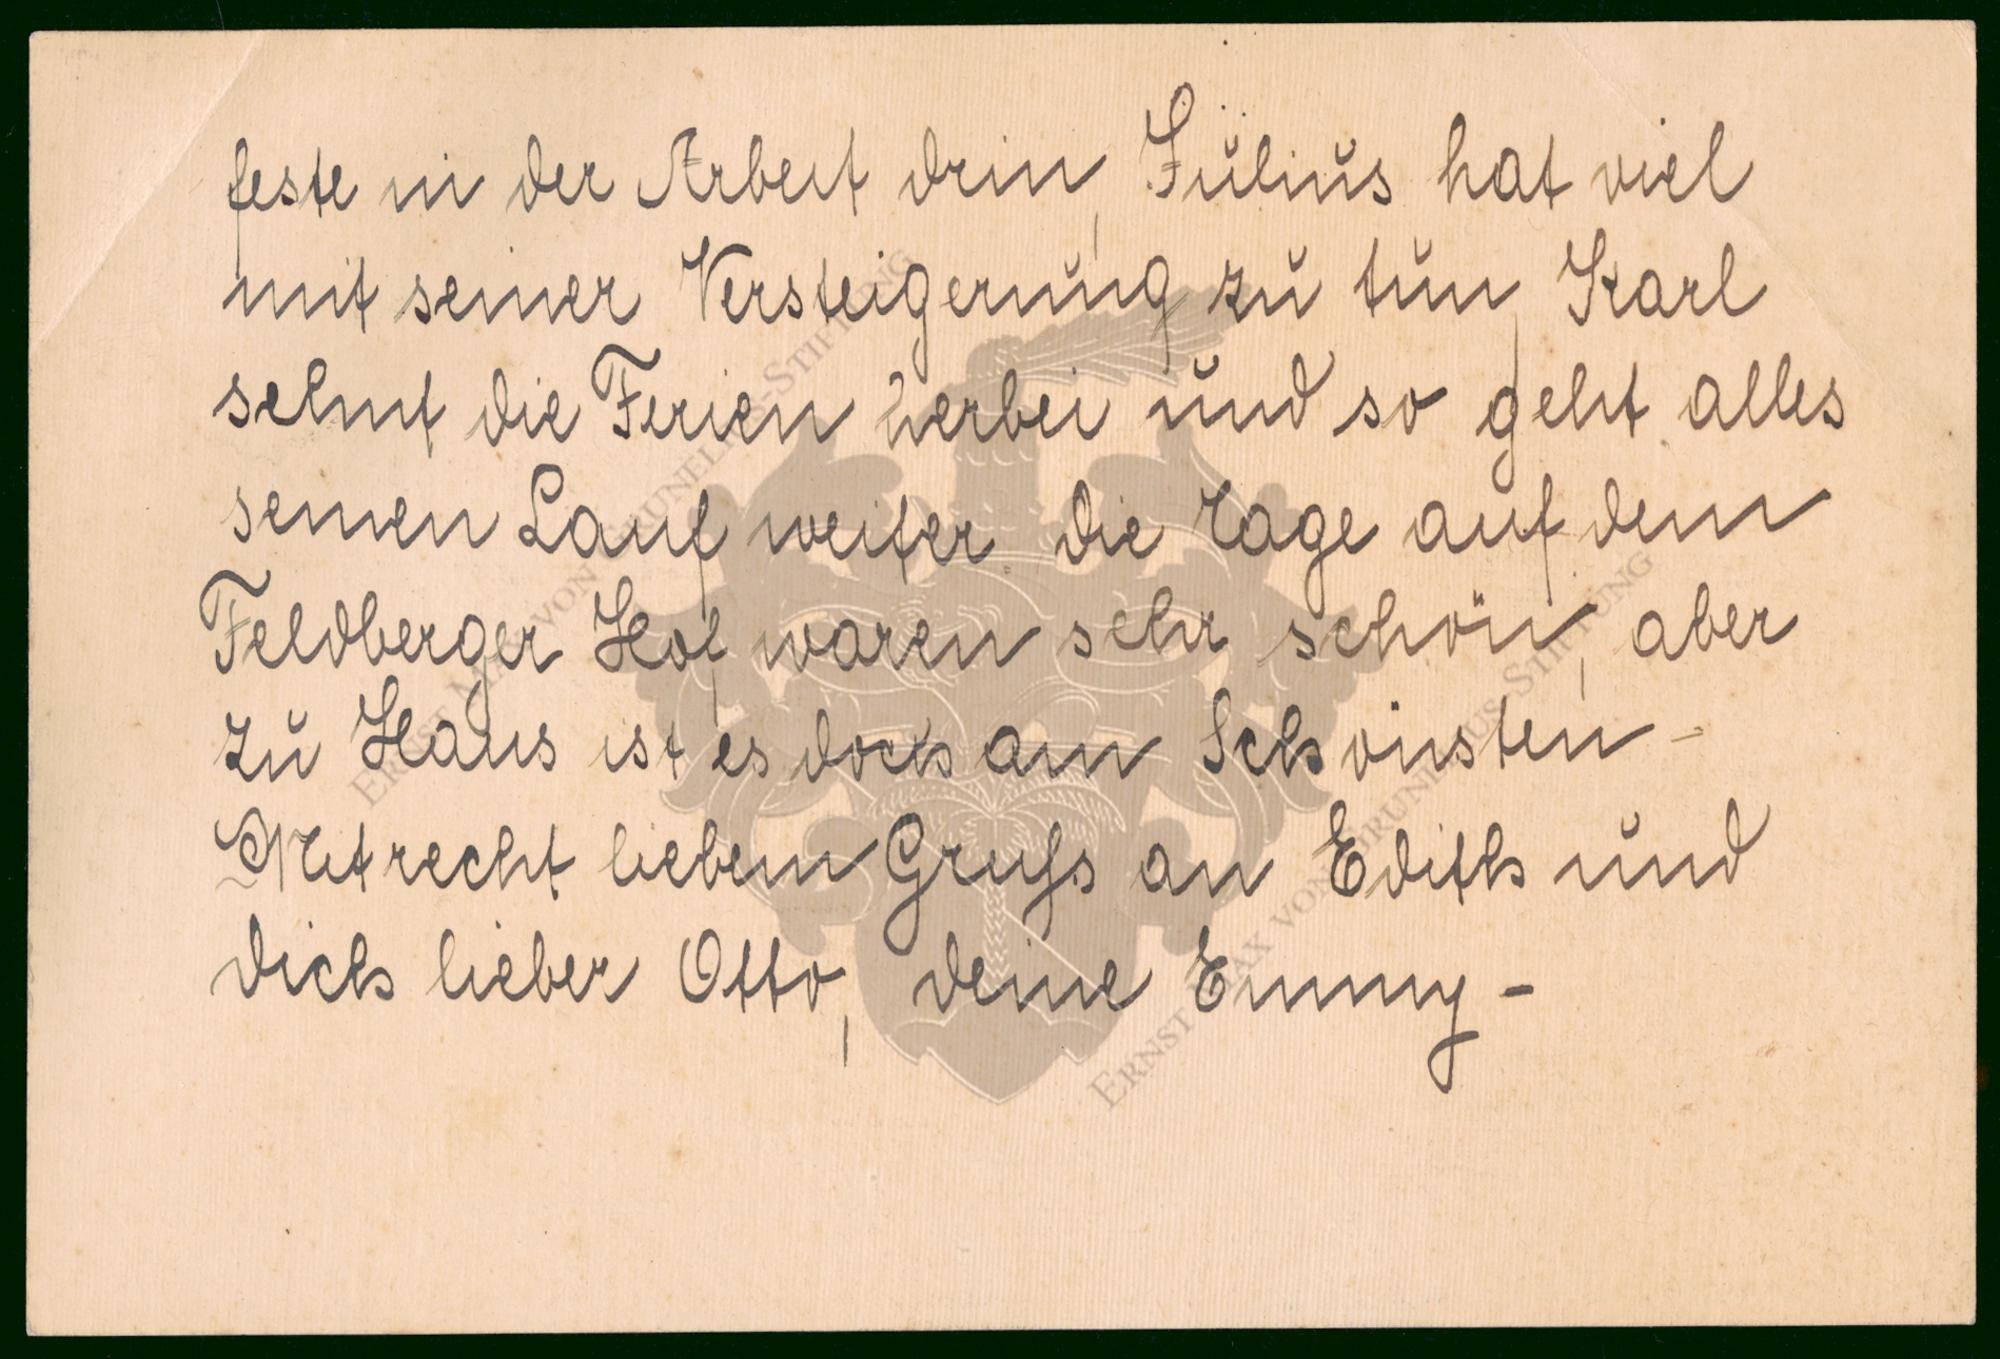 feste in der Arbeit drin, Julius hat viel
mit seiner Versteigerung zu tun, Karl
sehnt die Ferien herbei und so geht alles
seinen Lauf weiter. Die Tage auf dem
Feldberger Hof waren sehr schön, aber
zu Haus ist es doch am Schönsten –
Mit recht liebem Gruss an Edith und
dich lieber Otto, deine Emmy –
Ernst Max von Grunelius-Stiftung
Ernst Max von Grunelius-Stiftung